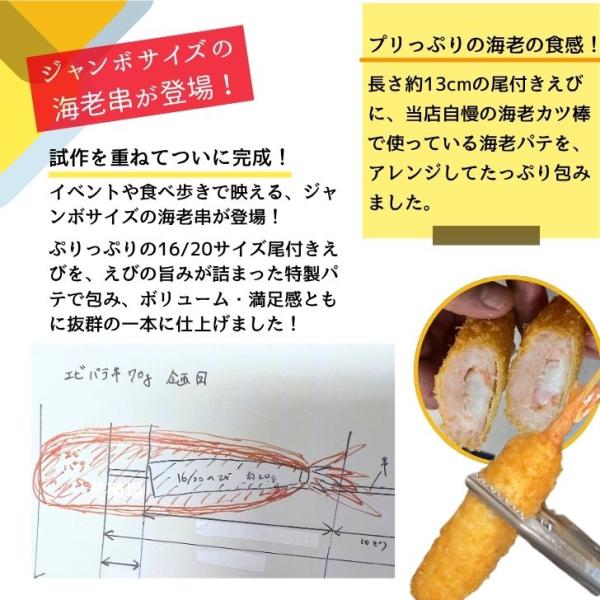 ジャンボサイズの
海老串が登場！
試作を重ねてついに完成！
イベントや食べ歩きで映える、ジャ
ンボサイズの海老串が登場！
ぷりっぷりの16/20サイズ尾付きえ
びを、えびの旨みが詰まった特製パ
テで包み、ボリューム・満足感とも
に抜群の一本に仕上げました！
プリっぷりの海老の食感！
長さ約13cmの尾付きえび
に、当店自慢の海老カツ棒
で使っている海老パテを、
アレンジしてたっぷり包み
ました。
エビパテ串 70g 企画図
16/20のエビ 約20g
串